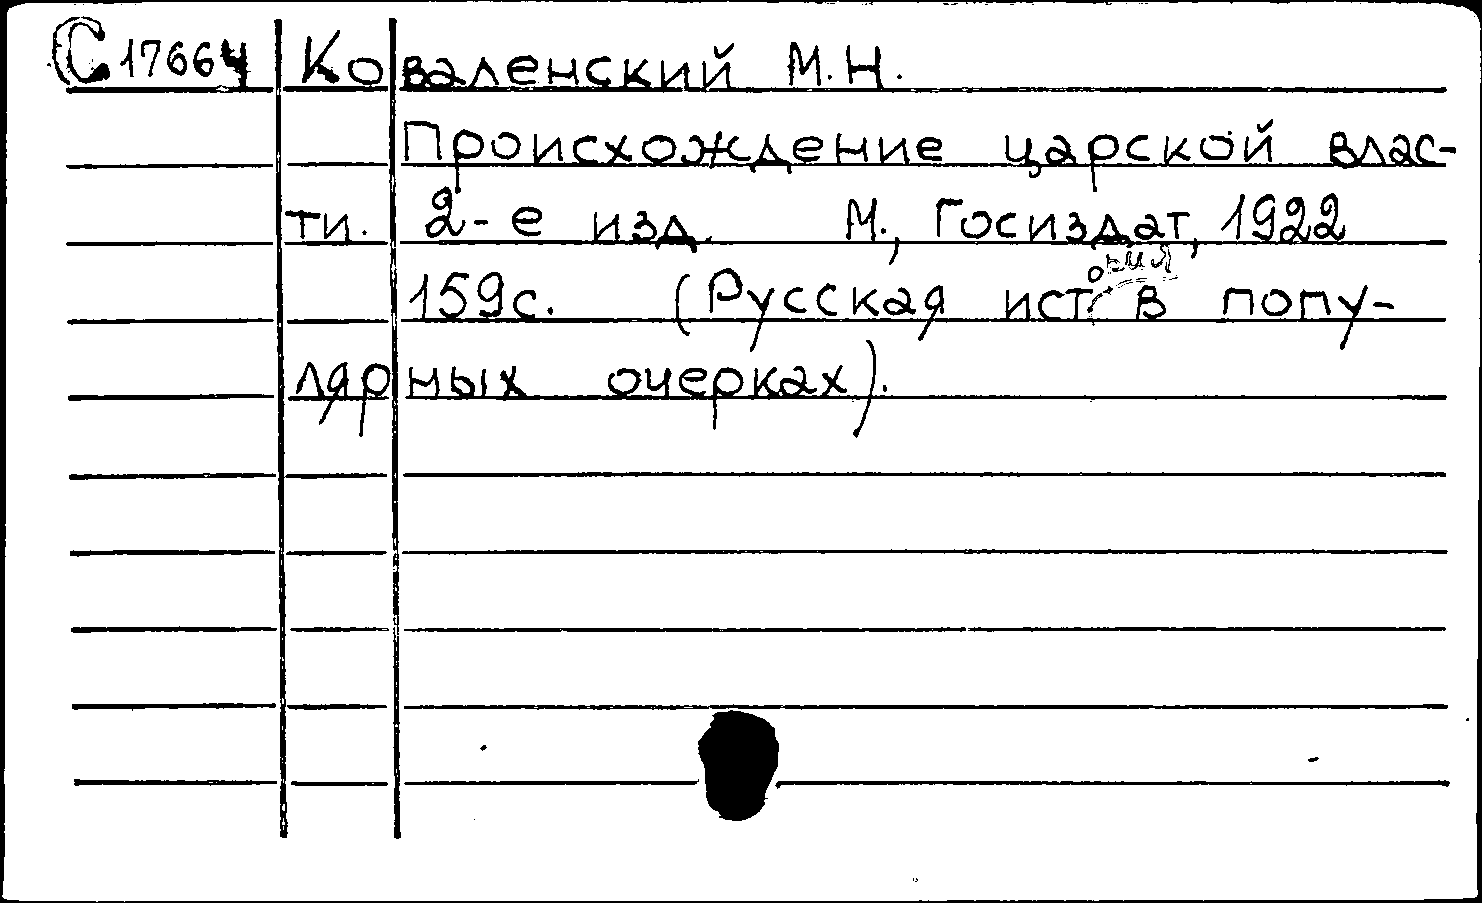 С17664 Коваленский М.Н.
Происхождение царской влас-
ти. 2-е изд. М., Госиздат, 1922
159с. (Русская история в попу-
лярных очерках).